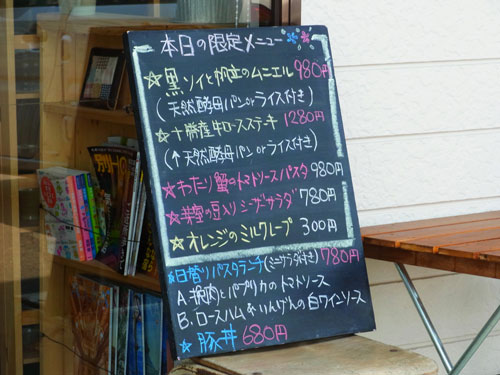 本日の限定メニュー
☆黒ソイと帆立のムニエル 980円
(天然酵母パンorライス付き)
☆十勝産牛ロースステーキ 1280円
(↑天然酵母パンorライス付き)
★わたり蟹のトマトソースパスタ 980円
の豆入りシーザーサラダ 780円
☆オレンジのミルクレープ 300円
★日替りパスタランチ(ミニサラダ付き) 780円
A.豚肉とパプリカのトマトソース
B.ロースハム&いんげんの白ワインソース
★豚丼 680円